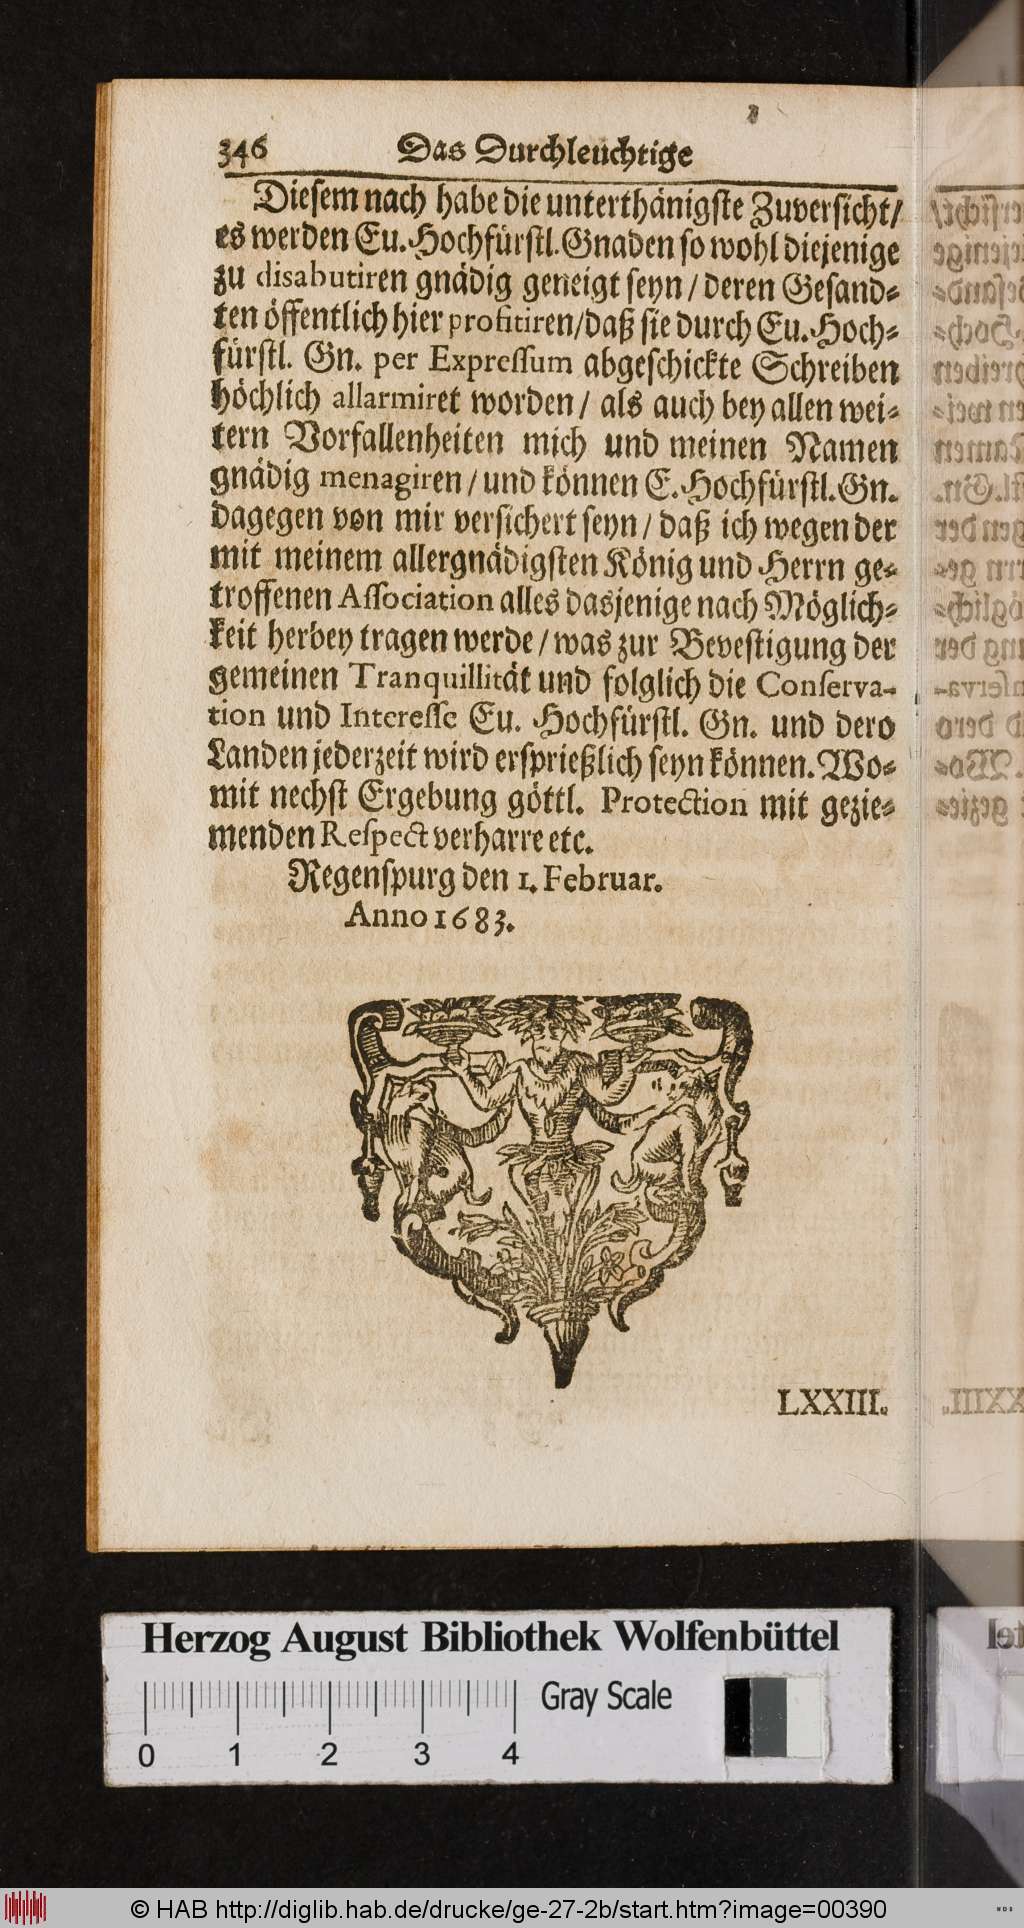 346 Das Durchleuchtige
Diesem nach habe die unterthänigste Zuversicht/
es werden Eu. Hochfürstl. Gnaden so wohl diejenige
zu disabutiren gnädig geneigt seyn / deren Gesand-
ten öffentlich hier profitiren/daß sie durch Eu. Hoch-
fürstl. Gn. per Expressum abgeschickte Schreiben
höchlich allarmiret worden / als auch bey allen wei-
tern Vorfallenheiten mich und meinen Namen
gnädig menagiren / und können E. Hochfürstl. Gn.
dagegen von mir versichert seyn / daß ich wegen der
mit meinem allergnädigsten König und Herrn ge-
troffenen Association alles dasjenige nach Möglich-
keit herbey tragen werde / was zur Bevestigung der
gemeinen Tranquillität und folglich die Conserva-
tion und Interesse Eu. Hochfürstl. Gn. und dero
Landen jederzeit wird ersprießlich seyn können. Wo-
mit nechst Ergebung göttl. Protection mit gezie-
menden Respect verharre etc.
Regenspurg den 1. Februar.
Anno 1683.
LXXIII.
Herzog August Bibliothek Wolfenbüttel
Gray Scale
0 1 2 3 4
© HAB http://diglib.hab.de/drucke/ge-27-2b/start.htm?image=00390